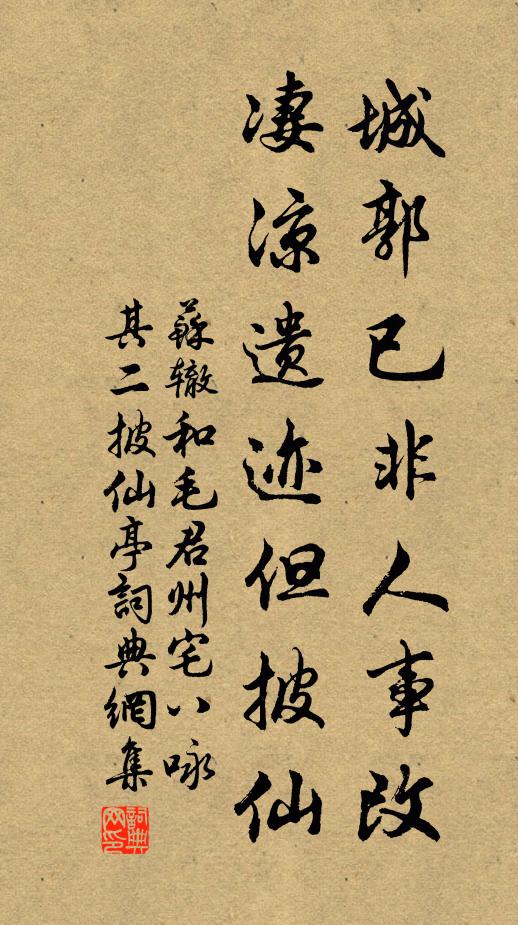 城郭已非人事改
凄凉遗迹但披仙
蘇辙和毛君州宅八咏
其二披仙亭詞典網集
詞典网印